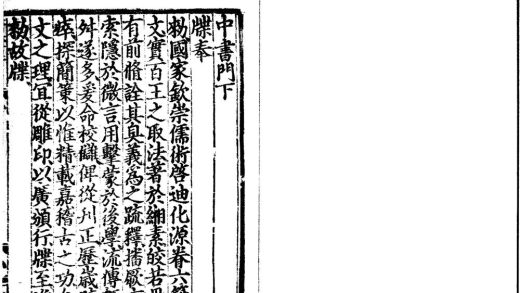 中書門下
牒奉
敕國家欽崇儒術啓迪化源眷六
文實百王之取法著於緗素皎若
有前脩詮其奧義爲之疏釋播厥
索隱於微言用擊蒙於後學流傳
舛遂多爰命校讎俾從刊正歷歲
瘁探簡策以惟精載嘉稽古之功
文之理宜從雕印以廣頒行牒至
敕故牒